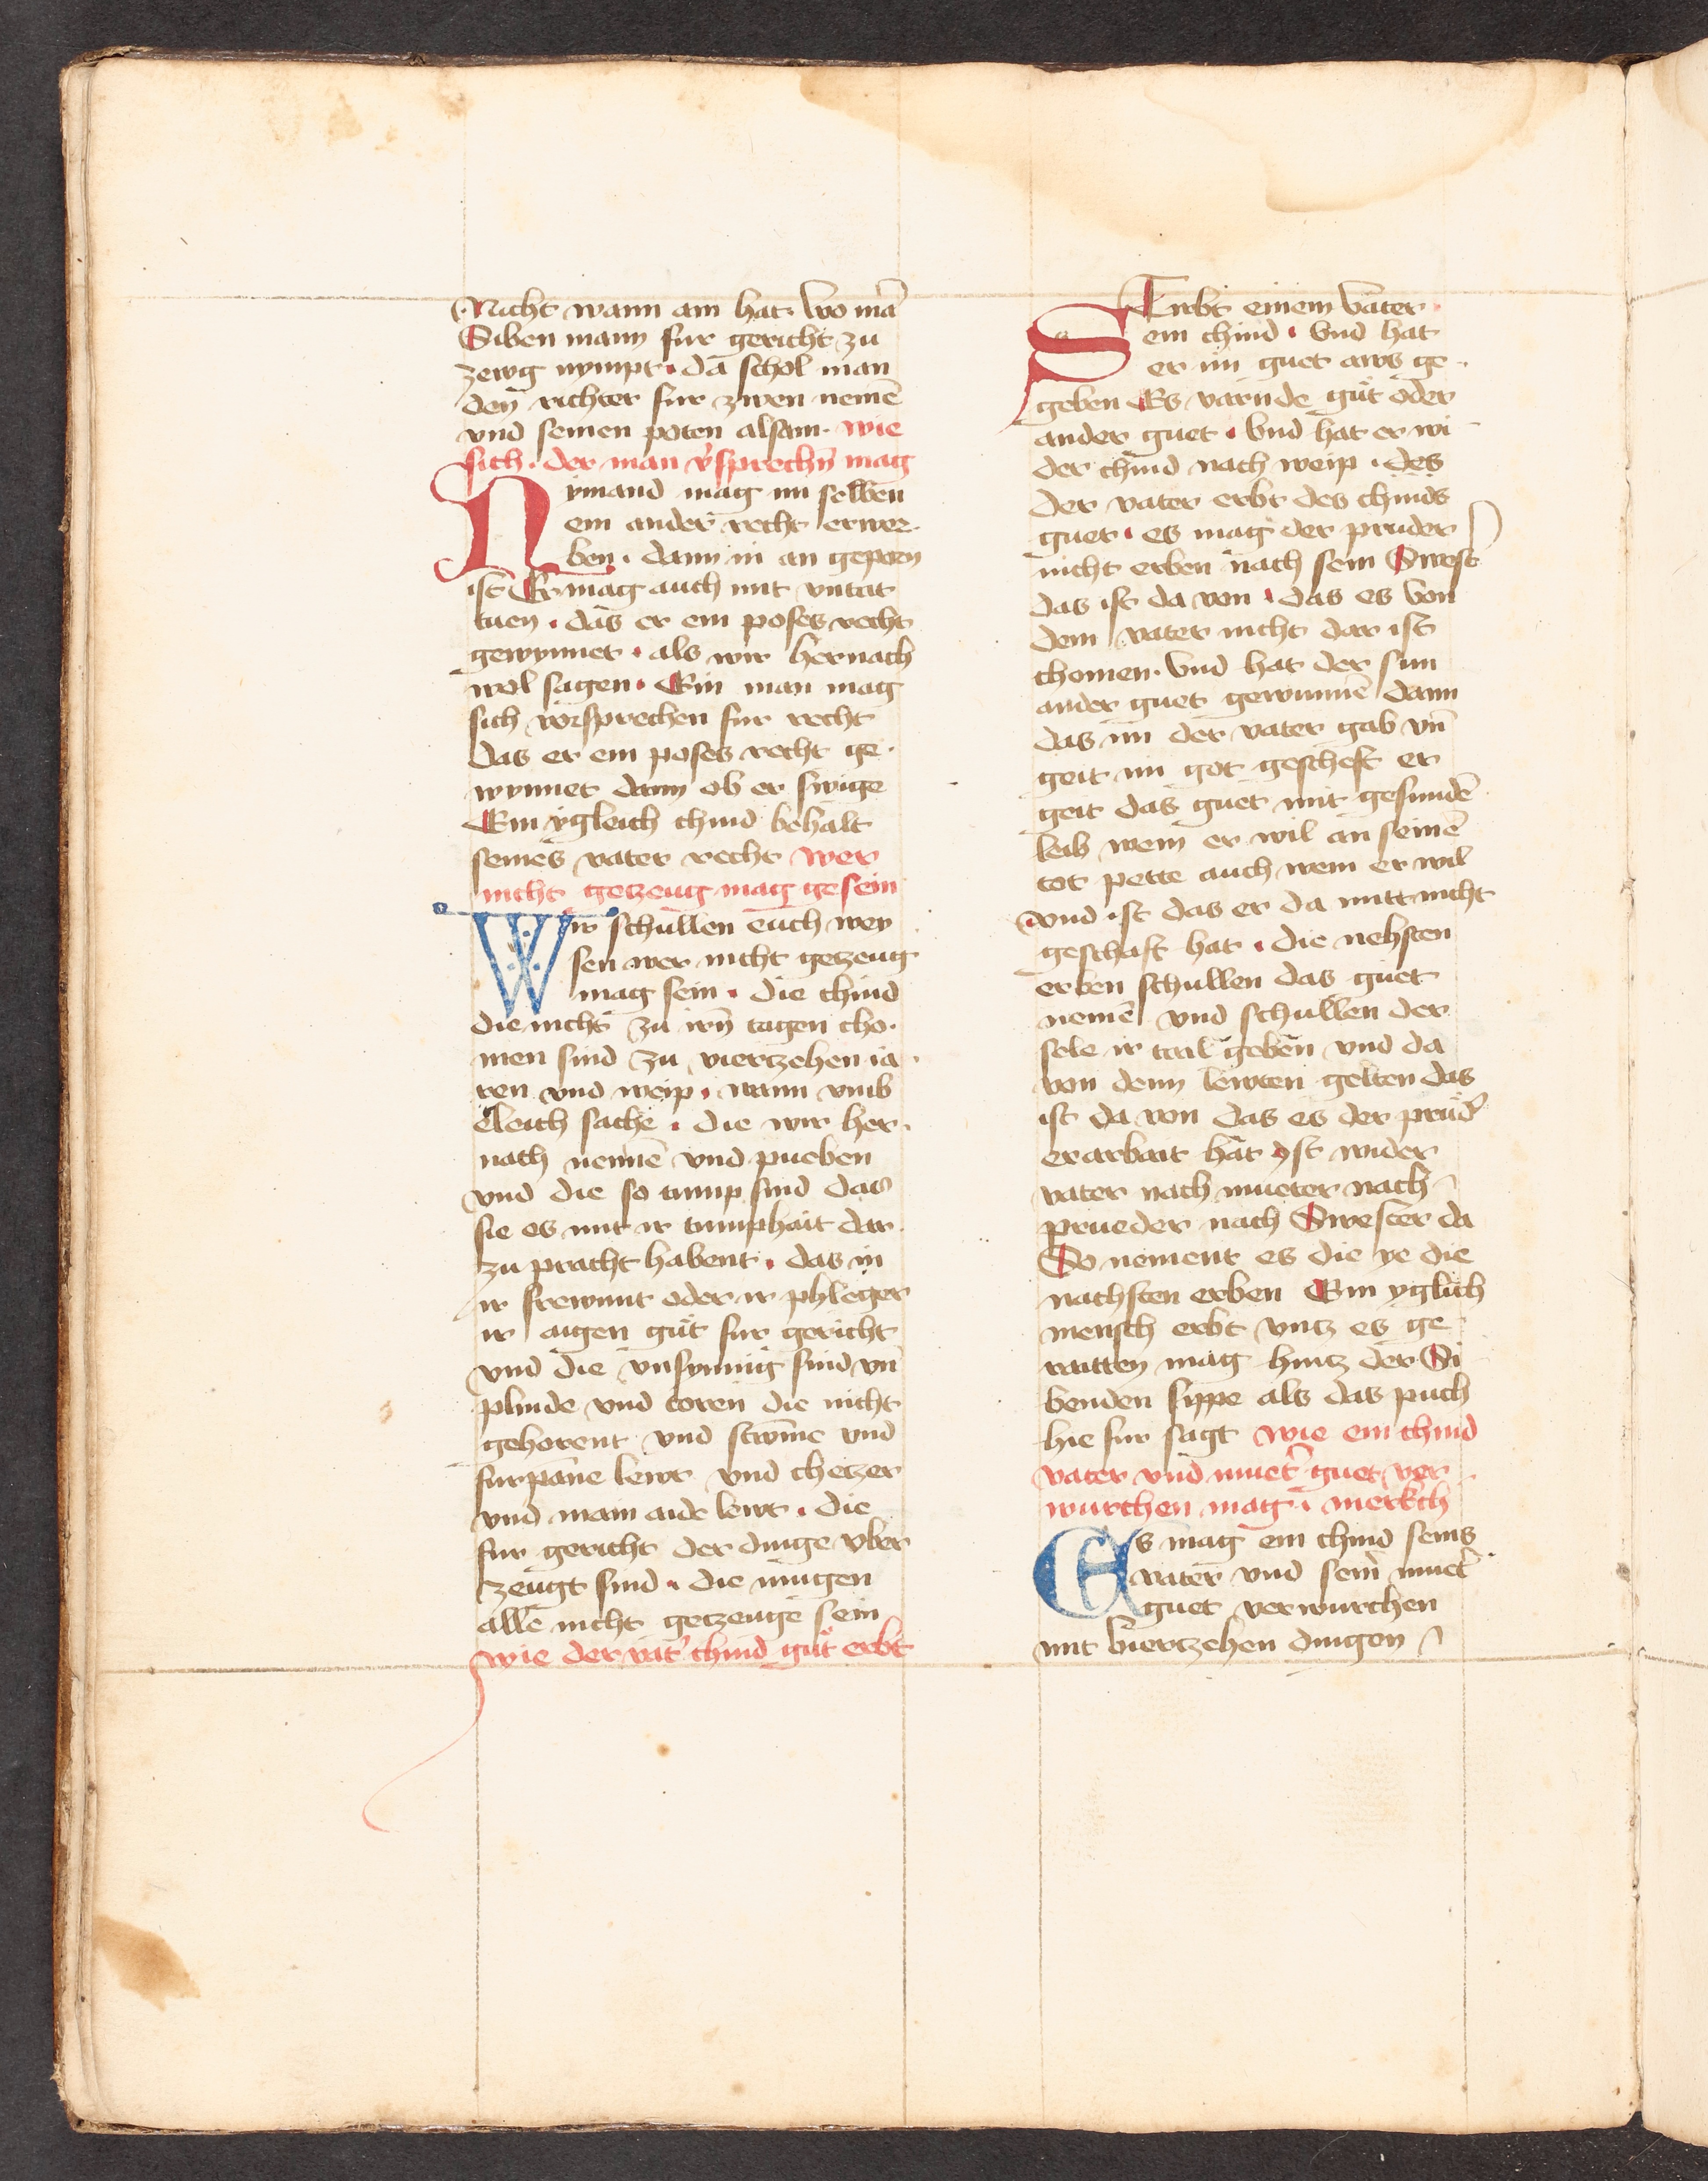 Nicht wann am hat. wo mā
Siben mann fur gericht zu
zewg nympt. da schol man
den richter fur zwen nemē
vnd seinen poten alsam. wie
sich. der man v̉sprechn̄ mag
Nymand mag im selben
ein ander recht erwer
ben. dann in an geporn
ist Er mag auch mit vntat
tuen. das er ein poses recht
gewynnet. als wir hernach
wol sagen. Ein man mag
sich vorsprechen fur recht
das er ein poses recht ge
wynnet dann ob er swige
Ein ygleich chind behalt
seines vater recht wer
nicht getzeug mag gesein
Wir schullen euch wey
sen wer nicht getzeug
mag sein. die chind
die nicht zu irn̄ tagen cho
men sind zu viertzehen ia
ren vnd weip. wann vmb
eleich sache. die wir her
nach nennē vnd pueben
vnd die so tump sind das
sie es mit ir tumphait dar
zu pracht habent. das in
ir frewnnt oder ir phleger
ir aigen gůt fur gericht
vnd die vnsynnig sind vn̄
plinde vnd toren die nicht
gehorent vnd stvm̄e vnd
furpāne lewt vnd chetzer
vnd main aide lewt. die
fur gericht der dinge vber
zeugt sind. die mugen
alle nicht getzeuge sein
wie der vat̉ chind gůt erbt
Stirbt einem vater
ein chind. vnd hat
er im guet aws ge
geben Es varnde gůt oder
ander guet. vnd hat er wi
der chind nach weip. des
der vater erbt des chinds
guet. es mag der pruder
nicht erben nach sein Swest̉
das ist da von. das es von
dem vater nicht dar ist
chomen. vnd hat der sun
ander guet gewunnē dann
das im der vater gab vn̄
geit im got gescheft er
geit das guet mit gesundē
leib wem er wil an seinē
tot pette auch wem er wil
vnd ist das er da mitt nicht
geschaft hat. die nehsten
erben schullen das guet
nemē vnd schullen der
sele ir tail geben vnd da
von denn lewten gelten das
ist da von das es der prud̉
erarbait hat yst wider
vater nach mueter nach
prueder nach Swester da
So nement es die ye die
nachsten erben Ein yglich
mensch erbt vntz es ge
raitten mag hintz der Si
benden sippe als das puch
hie fur sagt wie ein chind
vater vnd muet̉ guet ver
wurchen mag. merkch
Es mag ein chind seins
vater vnd sein̉ muet̉
guet verwurchen
mit viertzehen dingen